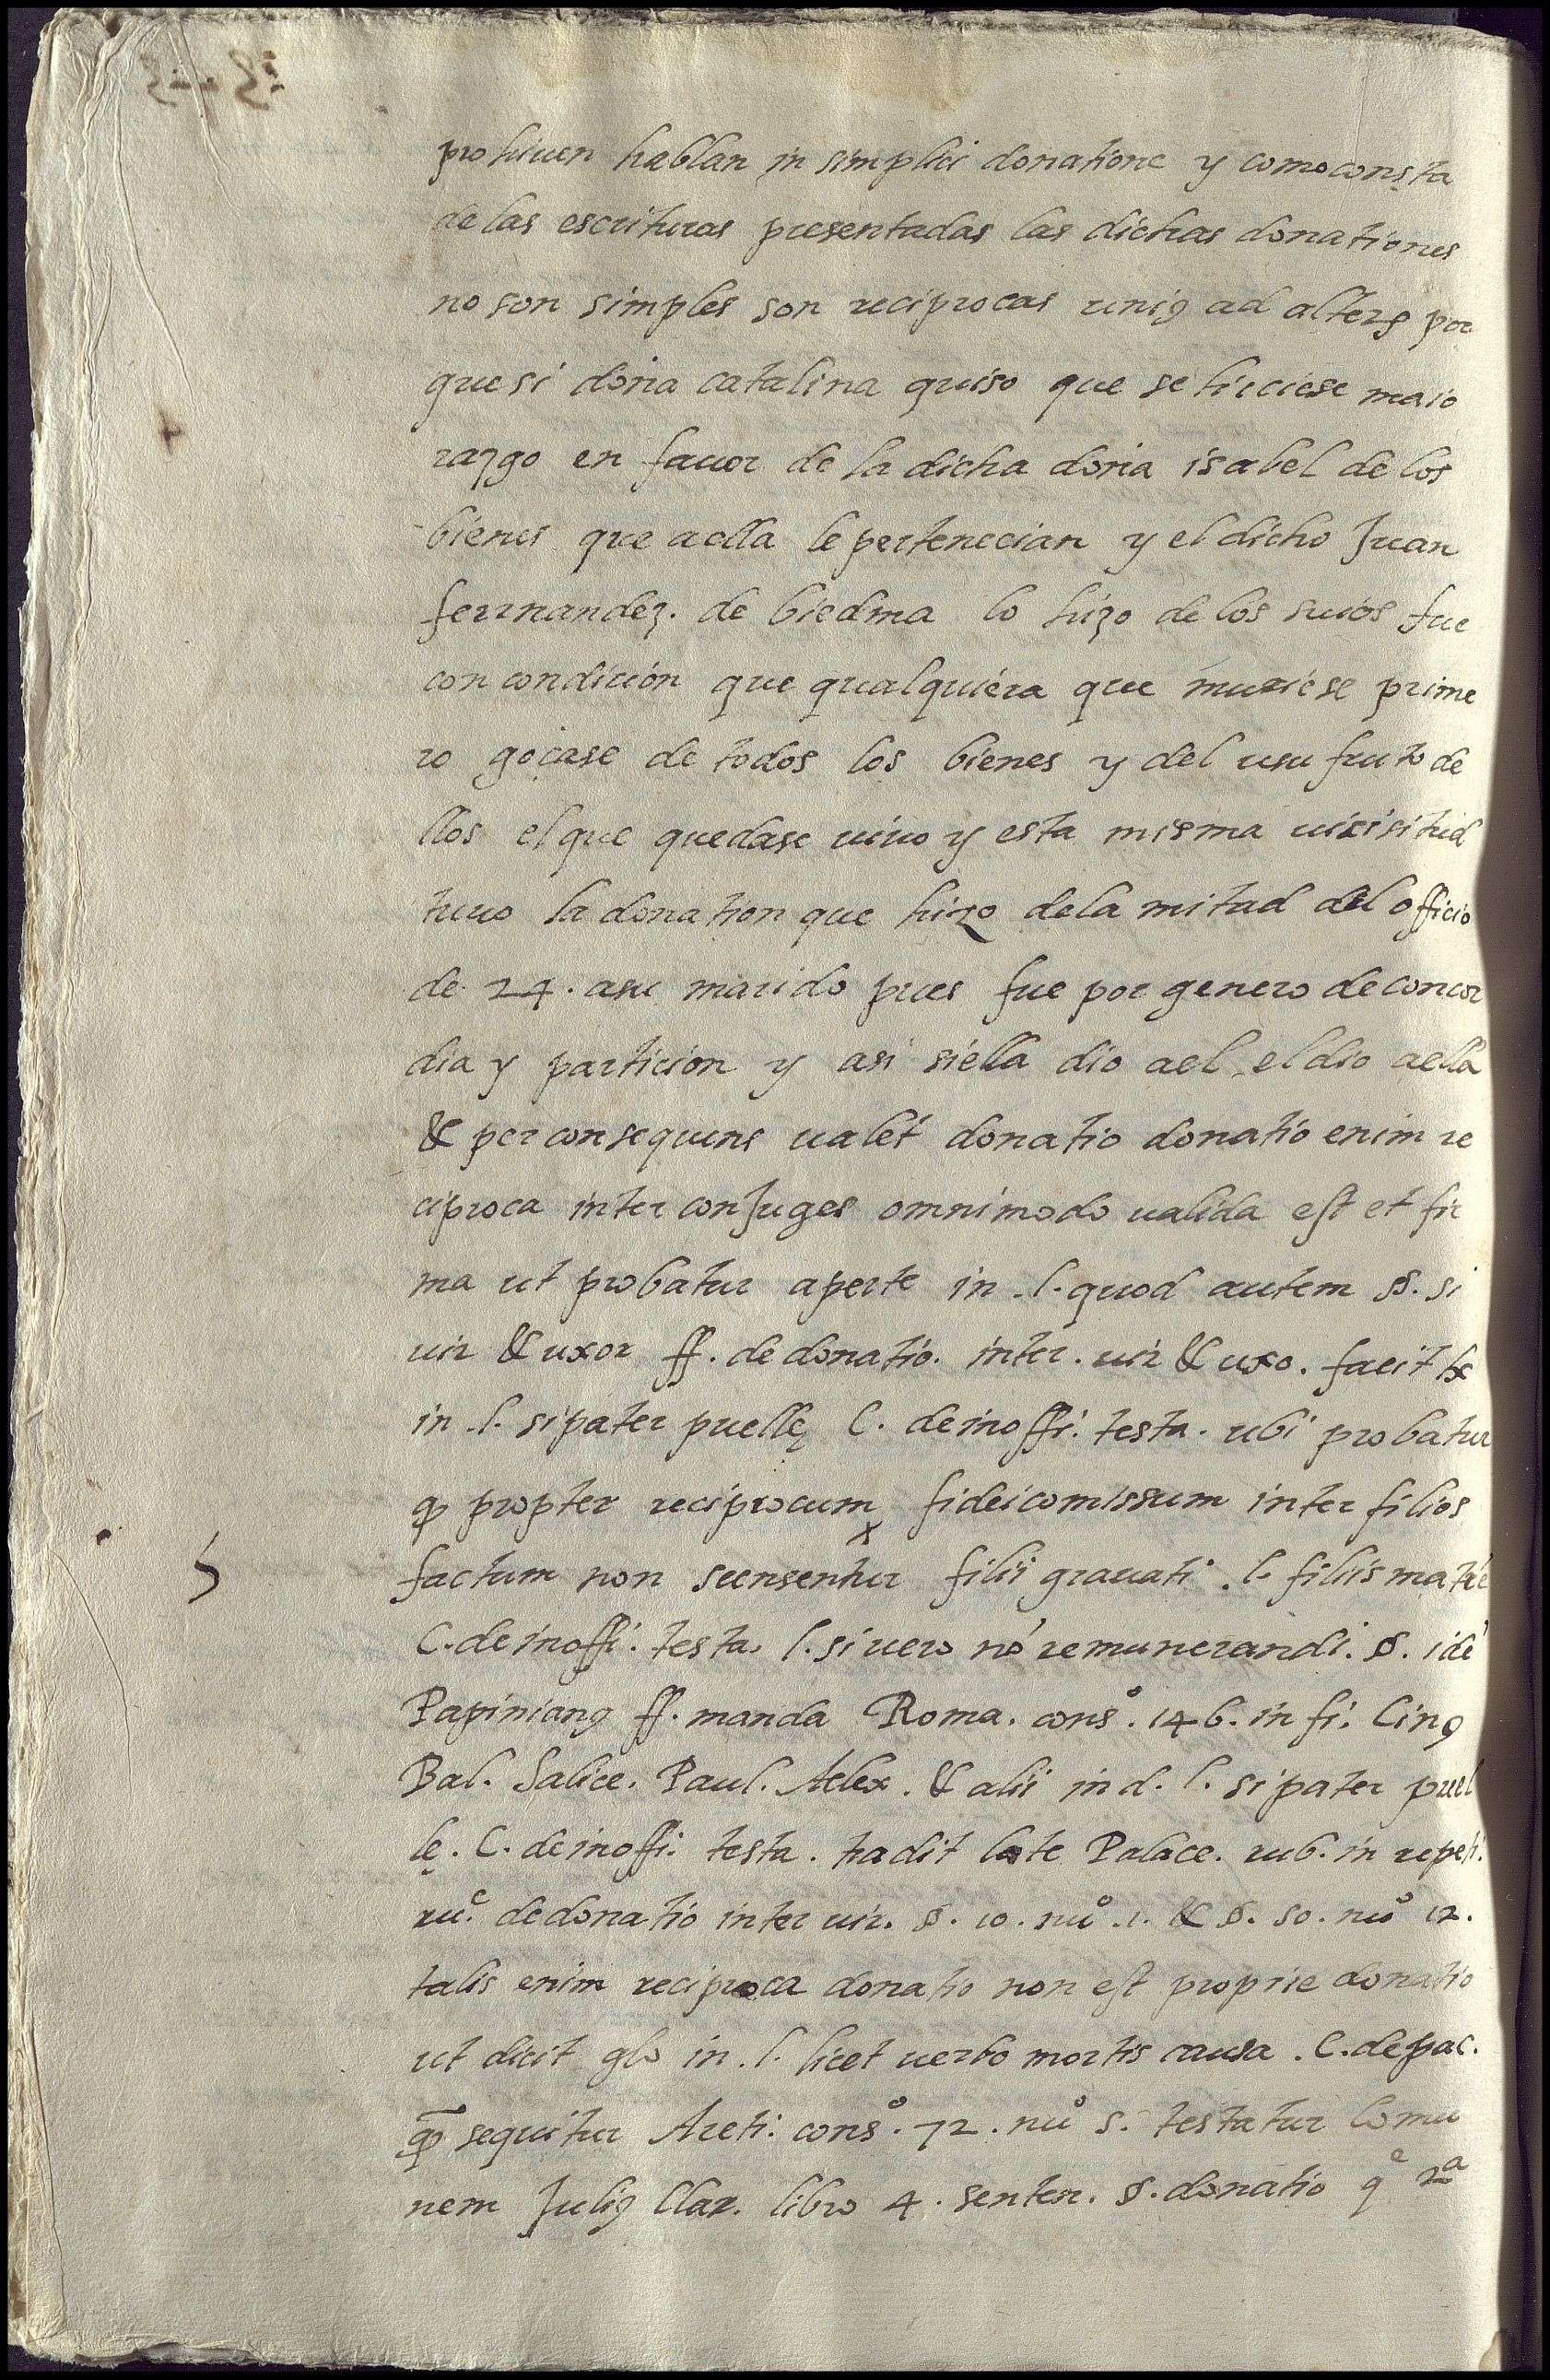 prohiuen hablan in simplici donatione y como consta
de las escrituras presentadas las dichas donationes
no son simples son reciprocas unius ad alterꝰ por
que si doña catalina quiso que se hiciese maio
razgo en fauor de la dicha doña isabel de los
bienes que a ella le pertenecian y el dicho Juan
ferrnandez. de biedma lo hizo de los suios fue
con condicion que qualquiera que muriese prime
ro goçase de todos los bienes y del usu fruto de
llos el que quedase uiuo y esta misma uisisitud
tuuo la donation que hizo de la mitad del officio
de 24. a su marido pues fue por genero de concor
dia y particion y asi si ella dio a el el dio a ella
& per consequens ualet donatio donatio enim re
ciproca inter conJuges omnimodo ualida est et fir
ma ut probatur aperte in .l. quod autem §§. si
uir & uxor ff. de donatio. inter. uir & uxo. facit tx
in .l. si pater puellę C. de inoffi. testa. ubi probatur
qꝫ propter reciprocum fideicomissum inter filios
factum non scensentur filii grauati .l. filiis matrē
C. de inoffi. testa. l. si uero nō remunerandi. §. idē
Papinianꝰ ff. manda Roma. consº. 146. in fi. Cinꝰ
Bal. Salice. Paul. Alex. & alii in d. l. si pater puel
lę. C. de inoffi. testa. tradit late Palace. rub. in repeti.
ru. de donatio inter uir. §. 10. nuº .1. & §. 50. nuº 12.
talis enim reciproca donatio non est proprie donatio
ut dicit glo in .l. licet uerbo mortis causa. C. de pac.
qꝫ sequitur Areti. consº. 72. nuº 5. testatur Comu
nem Juliꝰ Clar. libro 4. senten. §. donatio qe 2a